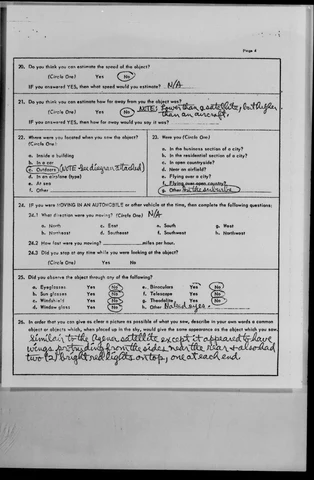 Page 4
20. Do you think you can estimate the speed of the object?
(Circle One) Yes No
IF you answered YES, then what speed would you estimate? N/A
21. Do you think you can estimate how far away you the object was?
(Circle One) Yes No NOTE: Lower than a satellite, but higher
than an aircraft.
IF you answered YES, then how far away would you say it was?
22. Where were you located when you saw the object?
(Circle One)
a. Inside a building
b. In a car
c. Outdoors (NOTE - See diagram attached)
d. In an airplane (type)
e. At sea
f. Other
23. Were you (Circle One)
a. In the business section of a city?
b. In the residential section of a city?
c. In open countryside?
d. Near an airfield?
e. Flying over a city?
f. Flying over open country?
g. Other In the suburbs
24. IF you were MOVING IN AN AUTOMOBILE or other vehicle at the time, then complete the following questions:
24.1 What direction were you moving? (Circle One) N/A
a. North c. East e. South g. West
b. Northeast d. Southeast f. Southwest h. Northwest
24.2 How fast were you moving? miles per hour.
24.3 Did you stop at any time while you were looking at the object?
(Circle One) Yes No
25. Did you observe the object through any of the following?
a. Eyeglasses Yes No e. Binoculars Yes No
b. Sun glasses Yes No f. Telescope Yes No
c. Windshield Yes No g. Theodolite Yes No
d. Window glass Yes No h. Other Naked eyes
26. In order that you can give as clear a picture as possible of what you saw, describe in your own words a common
object or objects which, when placed up in the sky, would give the same appearance as the object which you saw.
Similair to the Agena satellite except it appeared to have
wings protruding from the sides near the rear + also had
two (2) bright red lights on top, one at each end.